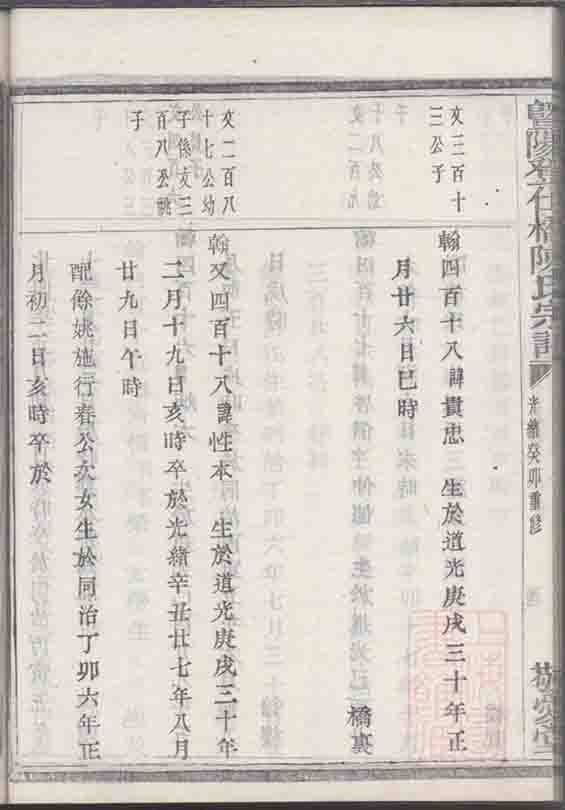 暨陽
橋陳氏宗譜
光緒癸卯重修
文三百十
三公子
翰四百十八諱貴忠 生於道光庚戌三十年正
月廿六日巳時 橋裏
文二百八
十七公幼
子係文三
百八公祧
子
翰又四百十八諱性本 生於道光庚戌三十年
二月十九日亥時卒於光緒辛丑廿七年八月
廿九日午時
配餘姚施行春公次女生於同治丁卯六年正
月初二日亥時卒於